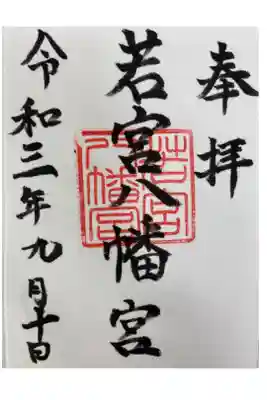 奉拝
若宮八幡宮
令和三年九月十日